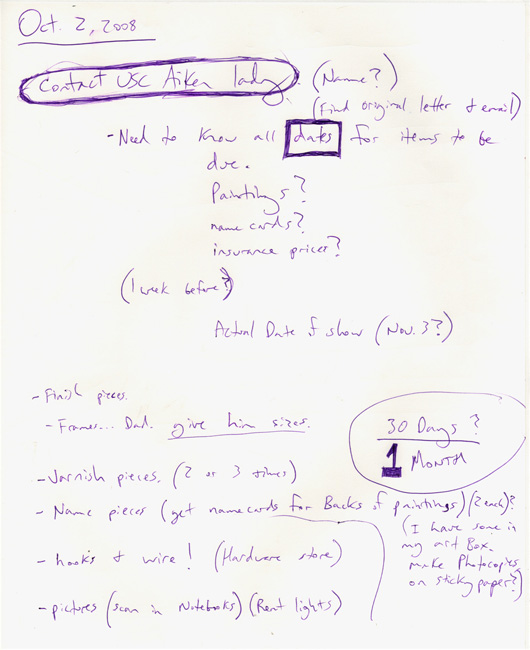 Oct. 2, 2008
Contact USC Aiken lady. (Name?)
(Find original letter & email)
- Need to know all dates for items to be
due.
Paintings?
name cards?
insurance prices?
(1 week before?)
Actual Date of show (Nov. 3?)
- Finish pieces.
- Frames... Dad. give him sizes.
30 Days?
1 MONTH
- Varnish pieces. (2 or 3 times)
- Name pieces (get namecards for Backs of paintings) (2 each)?
(I have some in
my art Box.
make Photocopies
on sticky paper?)
- hooks & wire! (Hardware store)
- pictures (scan in Notebooks) (Rent lights)